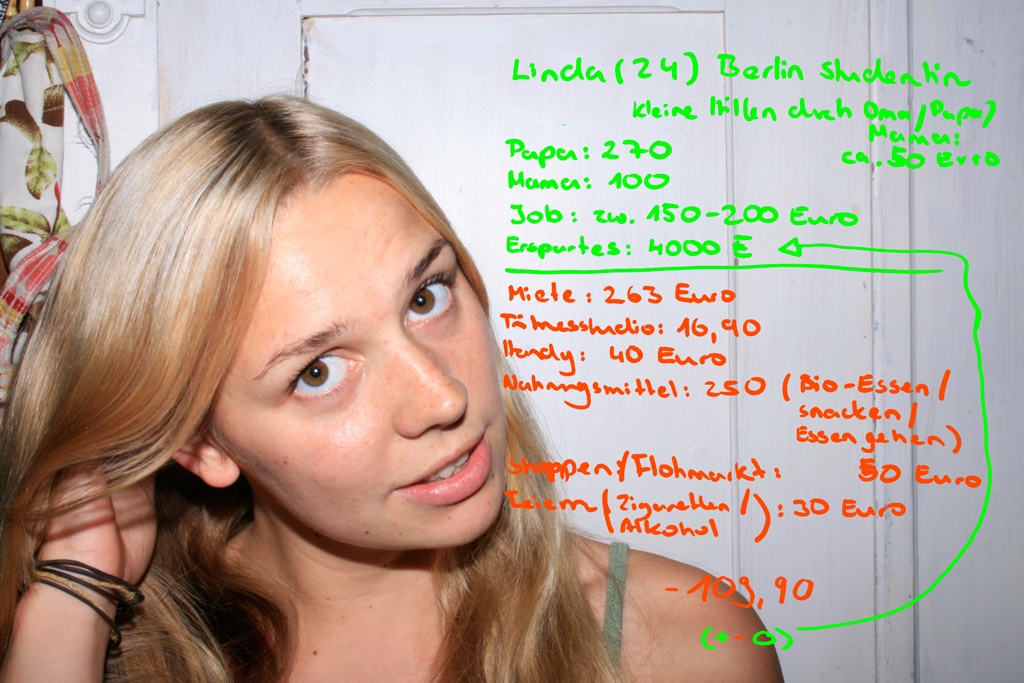 Linda (24) Berlin Studentin
kleine Hilfen durch Oma/Papa/
Mama:
ca. 50 Euro
Papa: 270
Mama: 100
Job: zw. 150-200 Euro
Erspartes: 4000 E
Miete: 263 Euro
Fitnesstudio: 16,90
Handy: 40 Euro
Nahrungsmittel: 250 (Bio-Essen/
snacken/
Essen gehen)
Shoppen/Flohmarkt: 50 Euro
Feiern (Zigaretten/
Alkohol): 30 Euro
-109,90
(+-0)